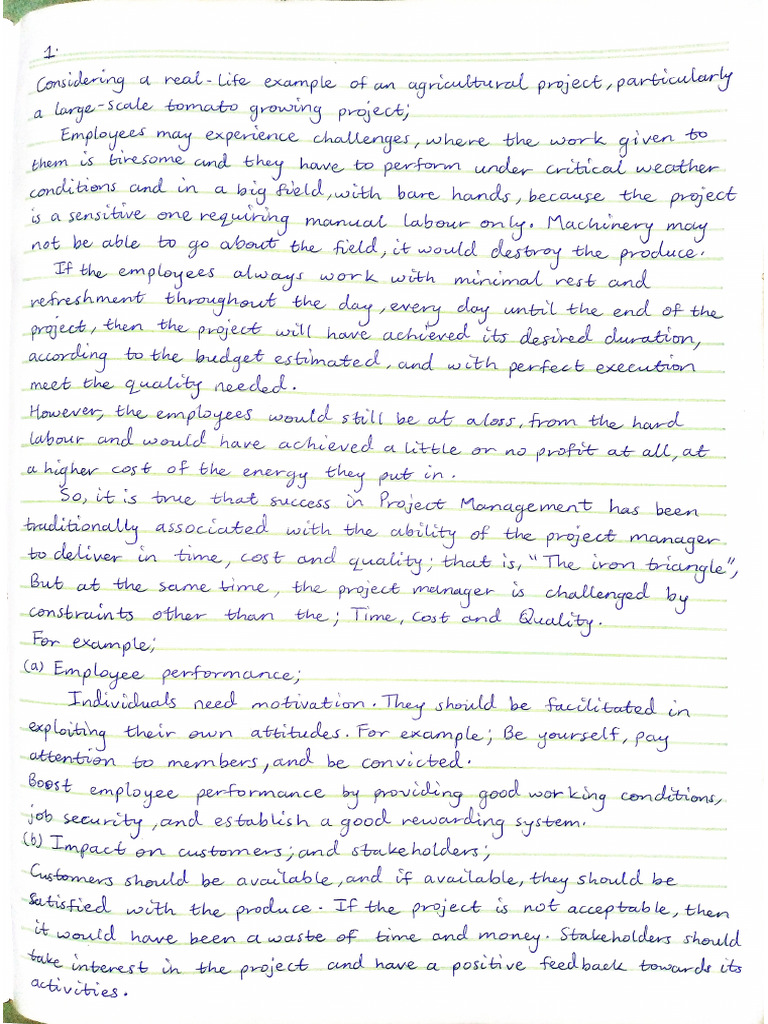 1.
Considering a real-life example of an agricultural project, particularly
a large-scale tomato growing project;
Employees may experience challenges, where the work given to
them is tiresome and they have to perform under critical weather
conditions and in a big field, with bare hands, because the project
is a sensitive one requiring manual labour only. Machinery may
not be able to go about the field, it would destroy the produce.
If the employees always work with minimal rest and
refreshment throughout the day, every day until the end of the
project, then the project will have achieved its desired duration,
according to the budget estimated, and with perfect execution
meet the quality needed.
However, the employees would still be at a loss, from the hard
labour and would have achieved a little or no profit at all, at
a higher cost of the energy they put in.
So, it is true that success in Project Management has been
traditionally associated with the ability of the project manager
to deliver in time, cost and quality; that is, "The iron triangle",
But at the same time, the project manager is challenged by
constraints other than the; Time, Cost and Quality.
For example;
(a) Employee performance;
Individuals need motivation. They should be facilitated in
exploiting their own attitudes. For example; Be yourself, pay
attention to members, and be convicted.
Boost employee performance by providing good working conditions,
job security, and establish a good rewarding system.
(b) Impact on customers; and stakeholders;
Customers should be available, and if available, they should be
satisfied with the produce. If the project is not acceptable, then
it would have been a waste of time and money. Stakeholders should
take interest in the project and have a positive feedback towards its
activities.